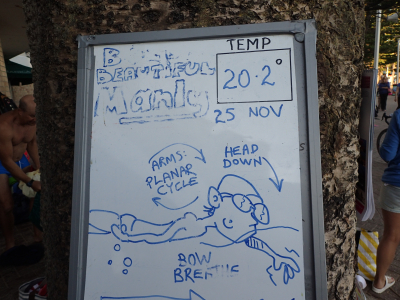 B
BEAUTIFUL
Manly
TEMP
20.2°
25 NOV
ARMS:
PLANAR
CYCLE
HEAD
DOWN
BOW
BREATHE